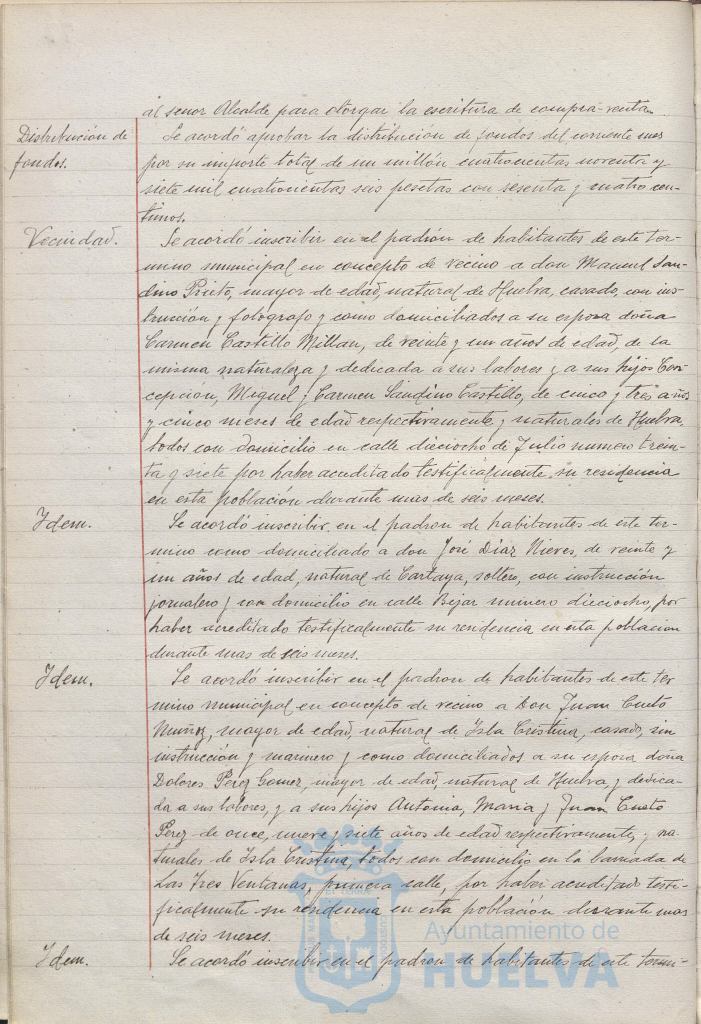 al señor Alcalde para otorgar la escritura de compra-venta.
Distribución de fondos.
Se acordó aprobar la distribución de fondos del corriente mes
por su importe total de un millón cuatrocientas noventa y
siete mil cuatrocientas seis pesetas con sesenta y cuatro cen-
timos.
Vecindad.
Se acordó inscribir en el padrón de habitantes de este tér-
mino municipal en concepto de vecino a don Manuel San-
dino Prieto, mayor de edad, natural de Huelva, casado, con ins-
trucción y fotógrafo y como domiciliados a su esposa doña
Carmen Castillo Millan, de veinte y un años de edad, de la
misma naturaleza y dedicada a sus labores y a sus hijos Con-
cepción, Miguel y Carmen Sandino Castillo, de cinco y tres años
y cinco meses de edad respectivamente y naturales de Huelva,
todos con domicilio en calle dieciocho de Julio numero trein-
ta y siete por haber acreditado testificalmente su residencia
en esta población durante mas de seis meses.
Idem.
Se acordó inscribir en el padron de habitantes de este ter-
mino como domiciliado a don José Díaz Nieves, de veinte y
un años de edad, natural de Cartaya, soltero, con instrucción
jornalero y con domicilio en calle Bejar numero dieciocho, por
haber acreditado testificalmente su residencia en esta poblacion
durante mas de seis meses.
Idem.
Se acordó inscribir en el padron de habitantes de este ter
mino municipal en concepto de vecino a Don Juan Cueto
Muñoz, mayor de edad, natural de Isla Cristina, casado, sin
instrucción y marinero y como domiciliados a su esposa doña
Dolores Pérez Gomez, mayor de edad, natural de Huelva y dedica-
da a sus labores, y a sus hijos Antonia, Maria y Juan Cueto
Pérez de once, nueve y siete años de edad respectivamente, y na-
turales de Isla Cristina, todos con domicilio en la barriada de
Las Tres Ventanas, primera calle, por haber acreditado testi-
ficalmente su residencia en esta población durante mas
de seis meses.
Idem.
Se acordó inscribir en el padron de habitantes de este termi-
Ayuntamiento de
HUELVA